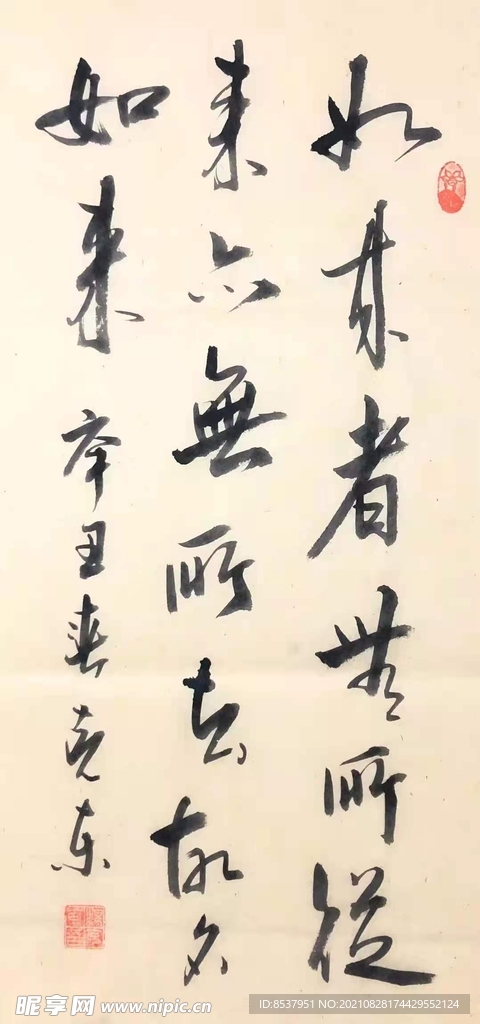 如来者無所從
来亦無所去故名
如来
辛丑春克东
昵享网 www.nipic.cn
ID:8537951 NO:20210828174429552124